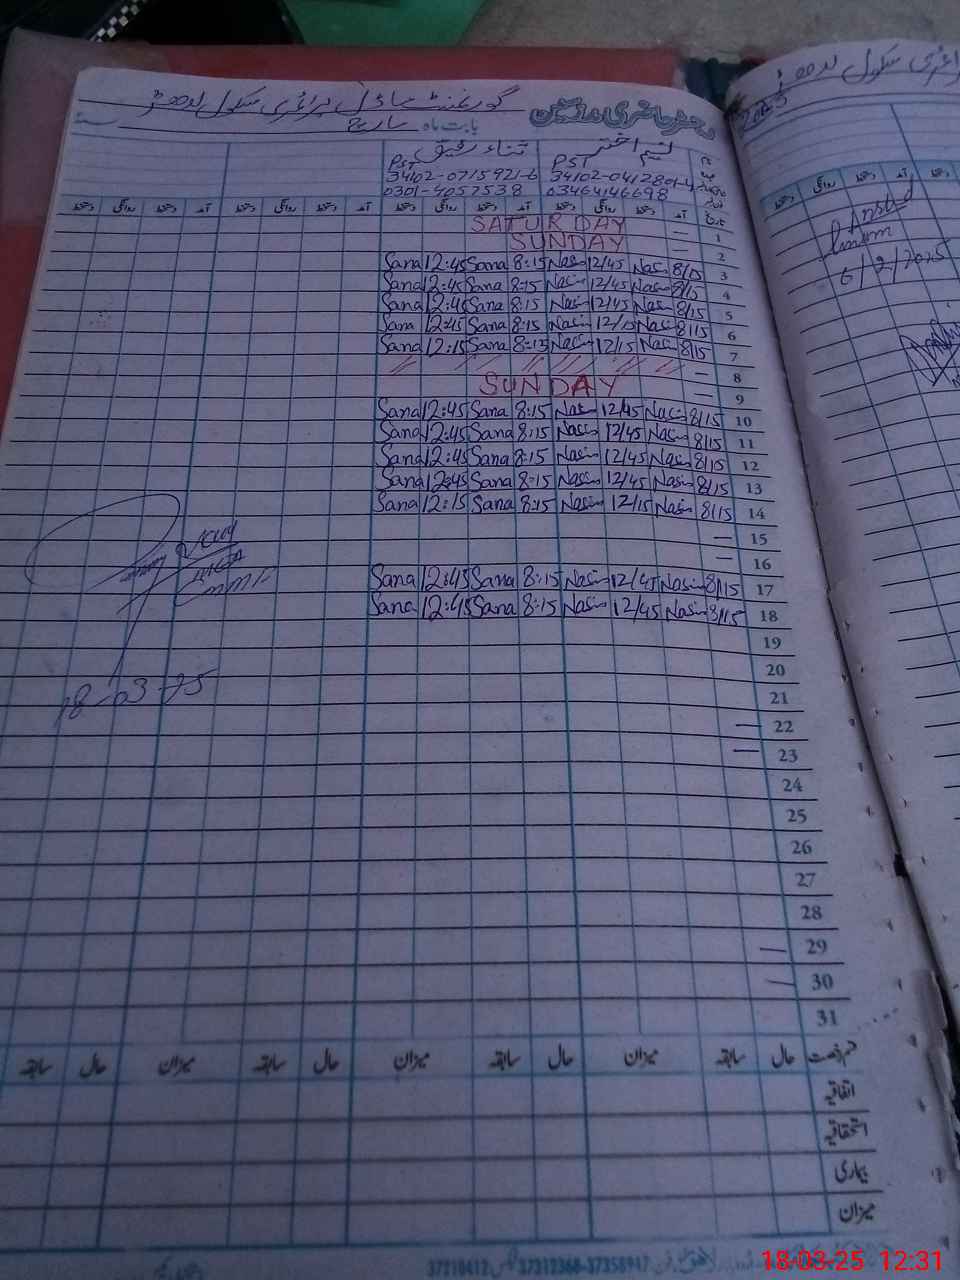 گورنمنٹ ماڈل پرائمری سکول
رجسٹر حاضری مدرسین
بابت ماہ مارچ
نسیم اختر ثناء رفیق
PST PST
34102-0715921-6
0301-4057538 03464146698
آمد دستخط روانگی دستخط آمد دستخط روانگی دستخط آمد دستخط روانگی دستخط آمد دستخط روانگی دستخط
SATURDAY — 1
SUNDAY — 2
Sana 12:45 Sana 8:15 Nasim 12/45 Nasim 8/15 3
Sana 12:45 Sana 8:15 Nasim 12/45 Nasim 8/15 4
Sana 12:45 Sana 8:15 Nasim 12/45 Nasim 8/15 5
Sana 12:45 Sana 8:15 Nasim Nasim 8/15 6
Sana 12:15 Sana 8:15 Nasim 12/15 Nasim 8/15 7
— 8
SUNDAY — 9
Sana 12:45 Sana 8:15 Nasim 12/45 Nasim 8/15 10
Sana 12:45 Sana 8:15 Nasim 12/45 Nasim 8/15 11
Sana 12:45 Sana 8:15 Nasim 12/45 Nasim 8/15 12
Sana 12:45 Sana 8:15 Nasim 12/45 Nasim 8/15 13
Sana 12:15 Sana 8:15 Nasim 12/15 Nasim 8/15 14
— 15
— 16
Sana 12:45 Sana 8:15 Nasim 12/45 Nasim 8/15 17
Sana 12:45 Sana 8:15 Nasim 12/45 Nasim 8/15 18
19
20
21
— 22
— 23
24
25
26
27
28
— 29
— 30
31
18-03-25
قسم رخصت حال سابقہ میزان حال سابقہ میزان حال سابقہ میزان حال سابقہ
اتفاقیہ
استحقاقیہ
بیماری
میزان
2025
پرائمری سکول
آمد روانگی دستخط
6/2/2025
18-03-25 12:31